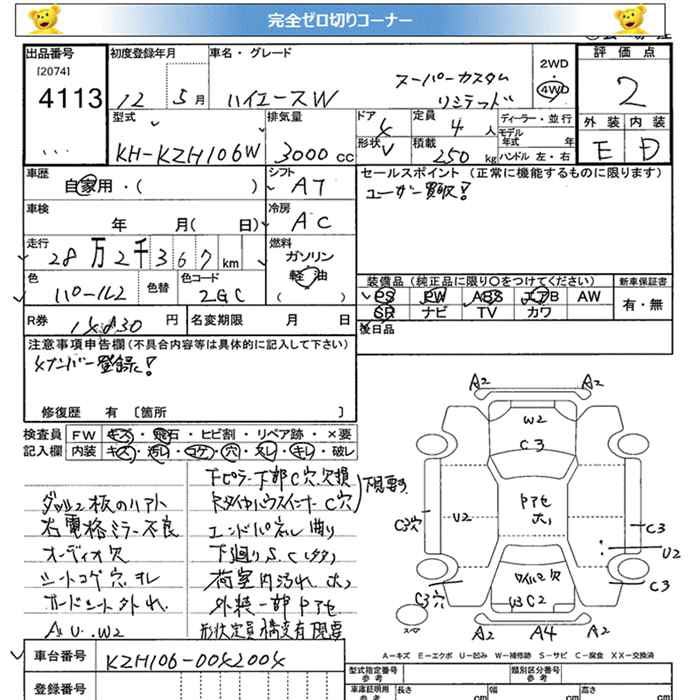 完全ゼロ切りコーナー
出品番号 初度登録年月 車名・グレード 2WD 評価点
[2074] スーパーカスタム ・
4113 12 5月 ハイエースW リミテッド 4WD 2
型式 排気量 ドア 定員 ディーラー・並行 外装 内装
4 4 人 モデル年式 年
KH-KZH106W 3000cc 形状 V 積載 250kg ハンドル 左・右 E D
車歴 シフト セールスポイント(正常に機能するものに限ります)
自家用・( ) AT ユーザー買取!
車検 冷房
年 月( 日) AC
走行 燃料
28万2千367km ガソリン
軽油
色 色替 色コード ( ) 装備品(純正品に限り○をつけてください) 新車保証書
パール2 2GC PS PW ABS エアB AW 有・無
SR ナビ TV カワ
R券 円 名変期限 月 日 後日品
注意事項申告欄(不具合内容等は具体的に記入して下さい)
4ナンバー登録!
修復歴 有 〔箇所 〕
検査員 FW キズ・飛石・ヒビ割・リペア跡・×要
記入欄 内装 キズ・汚レ・コゲ・穴・スレ・キレ・破レ
下ピラー下部C穴、欠損
R タイヤハウスインナーC穴
下現要す
右電格ミラー不良 エンドパネル曲り
オーディオ欠 下廻りS.C(タタ)
シートコゲ穴、キレ 荷室内汚れ大
ガードシート外れ 外装一部Pアセ
AU.W2 形状定員構変有 下現要
車台番号 KZH106-0042004
登録番号
A2 A2
W2
C3
C3穴 U2 Pアセ大 C3
U2
C3穴 C3
W3C2
スペア A2 A4 A2
A-キズ E-エクボ U-凹み W-補修跡 S-サビ C-腐食 XX-交換済
型式指定番号 参考 類別区分番号 参考
車庫証明用 参考 長さ cm 幅 cm 高さ cm